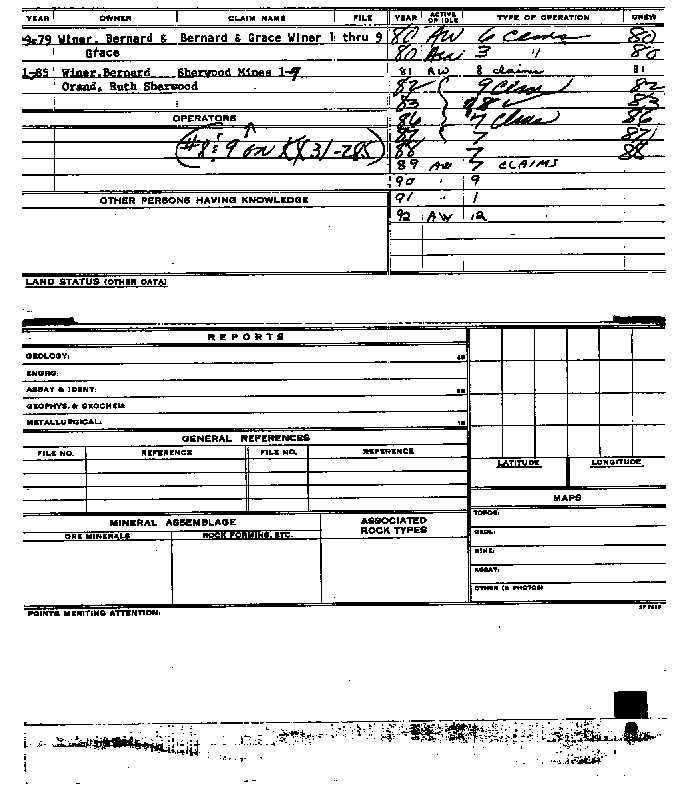 YEAR OWNER CLAIM NAME FILE YEAR ACTIVE OR IDLE TYPE OF OPERATION CREW
9-79 Winer, Bernard & Bernard & Grace Winer 1 thru 9 80 AW 6 Claims 80
Grace 80 AW 3 " 80
1-85 Winer, Bernard Sherwood Mines 1-7 81 AW 8 claims 81
Orand, Ruth Sherwood 82 9 Claims 82
83 8 83
OPERATORS 86 7 Claims 86
87 7 87
#8 & 9 on 88 7 88
89 AW 7 CLAIMS
90 " 9
OTHER PERSONS HAVING KNOWLEDGE 91 " 1
92 AW 12
LAND STATUS (OTHER DATA)
REPORTS
GEOLOGY:
ENGRG:
ASSAY & IDENT:
GEOPHYS. & GEOCHEM:
METALLURGICAL:
GENERAL REFERENCES
FILE NO. REFERENCE FILE NO. REFERENCE
LATITUDE LONGITUDE
MAPS
TOPOG:
GEOL:
MINE:
ASSAY:
OTHER (& PHOTOS)
MINERAL ASSEMBLAGE ASSOCIATED ROCK TYPES
ORE MINERALS ROCK FORMING, ETC.
POINTS MERITING ATTENTION: